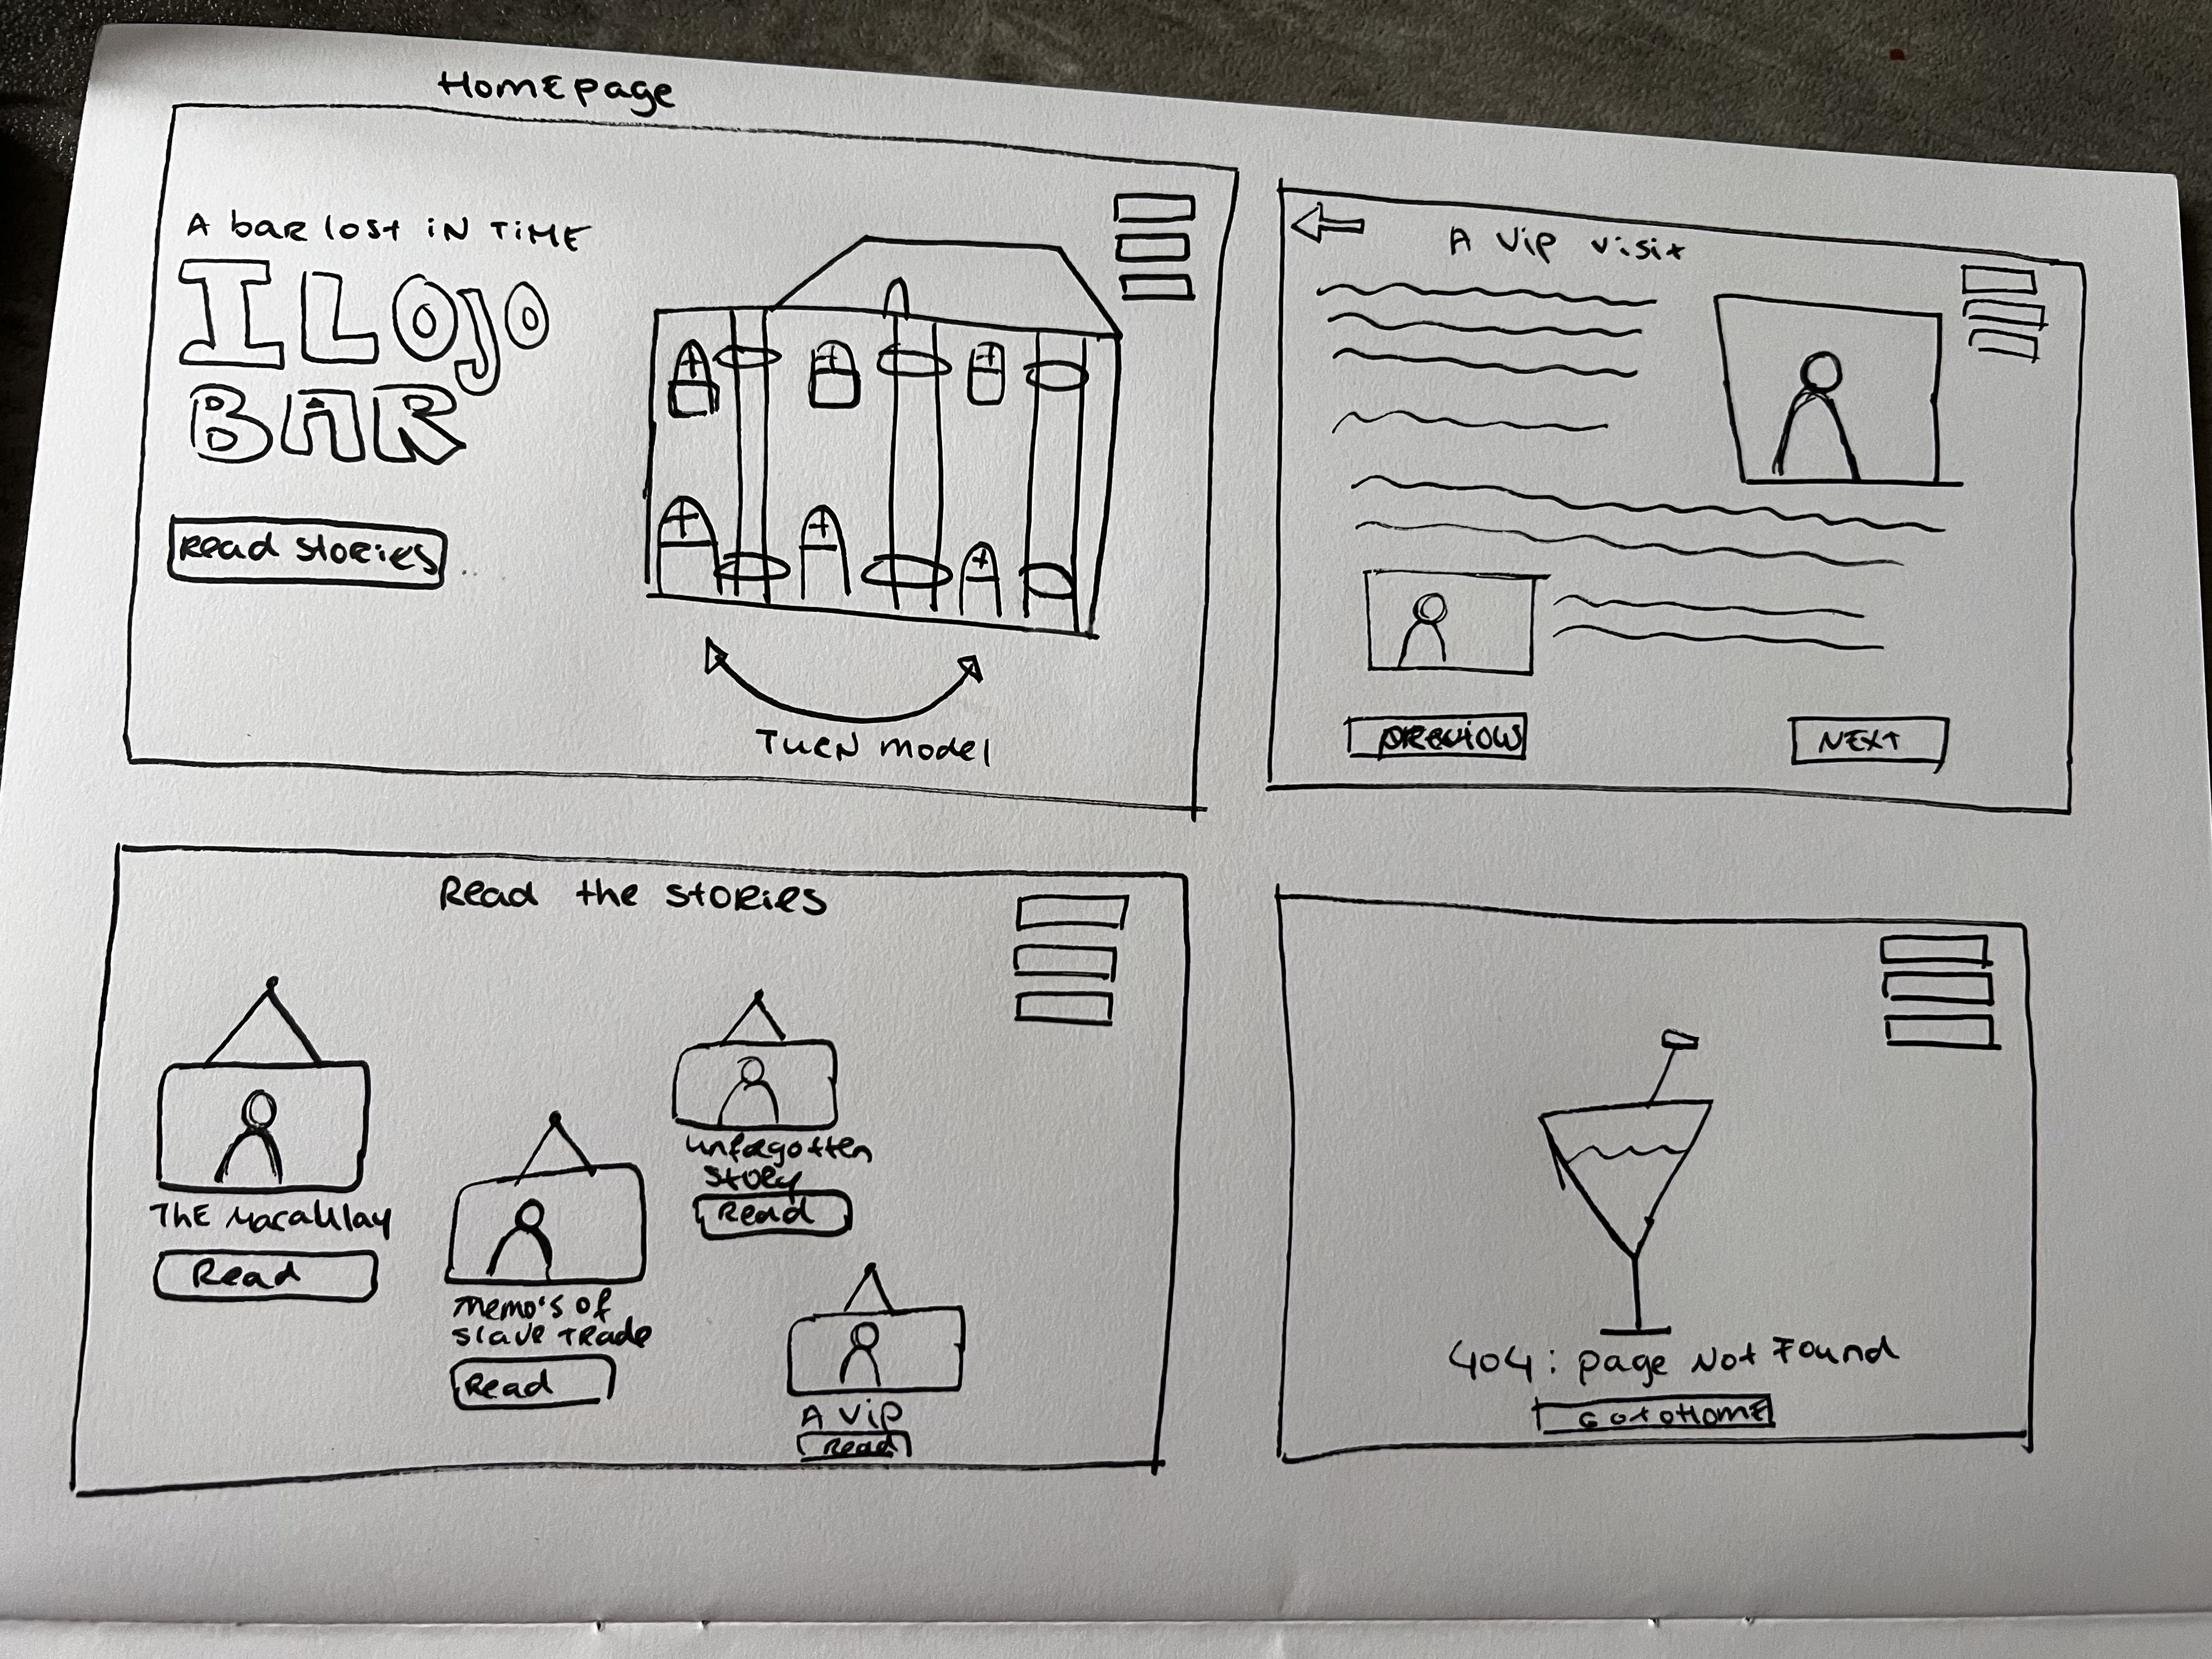 HomEpage
A bar lost iN TiME
ILOjO
BAR
Read stories
TurN model
A Vip visit
NEXT
Read the stories
ThE Macaulay
Read
memo's of
slave trade
Read
unforgotten
story
Read
A Vip
Read
404: page Not Found
Go to HOME